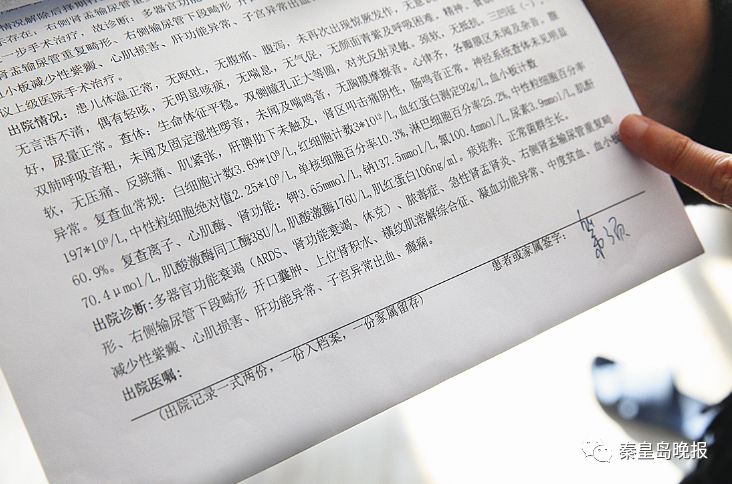 情况解除后择期
存在，右侧肾盂输尿管
一步手术治疗。故诊断：多器官功
肾盂输尿管重复畸形、右侧输尿管下段畸形 开
小板减少性紫癜、心肌损害、肝功能异常、子宫异常出血
议上级医院手术治疗。
出院情况：患儿体温正常，无呕吐，无腹痛、腹泻，未再次出现惊厥发作，无意识
无言语不清，偶有轻咳，无明显咳痰，无喘息，无气促，无颜面青紫及呼吸困难，精神、食
好，尿量正常。查体：生命体征平稳。双侧瞳孔正大等圆，对光反射灵敏。颈软，无抵抗。三凹征（-），
双肺呼吸音粗，未闻及固定湿性啰音，未闻及喘鸣音，无胸膜摩擦音。心律齐，各瓣膜区未闻及杂音，腹
软，无压痛、反跳痛、肌紧张，肝脾肋下未触及，肾区叩击痛阴性，肠鸣音正常。神经系统查体未见明显
异常。复查血常规：白细胞计数3.69*10⁹/L,红细胞计数3*10¹²/L,血红蛋白测定92g/L,血小板计数
197*10⁹/L,中性粒细胞绝对值2.25*10⁹/L,单核细胞百分率10.3%,淋巴细胞百分率25.2%,中性粒细胞百分率
60.9%。复查离子、心肌酶、肾功能：钾3.65mmol/L,钠137.5mmol/L,氯100.4mmol/L,尿素3.9mmol/L,肌酐
70.4μmol/L,肌酸激酶同工酶38U/L,肌酸激酶176U/L,肌红蛋白106ng/ml。痰培养：正常菌群生长。
出院诊断:多器官功能衰竭（ARDS、肾功能衰竭、休克）、脓毒症、急性肾盂肾炎、右侧肾盂输尿管重复畸
形、右侧输尿管下段畸形 开口囊肿、上位肾积水、横纹肌溶解综合征、凝血功能异常、中度贫血、血小板
减少性紫癜、心肌损害、肝功能异常、子宫异常出血、癫痫。
出院医嘱:
患者或家属签字：
(出院记录一式两份，一份入档案，一份家属留存)
秦皇岛晚报